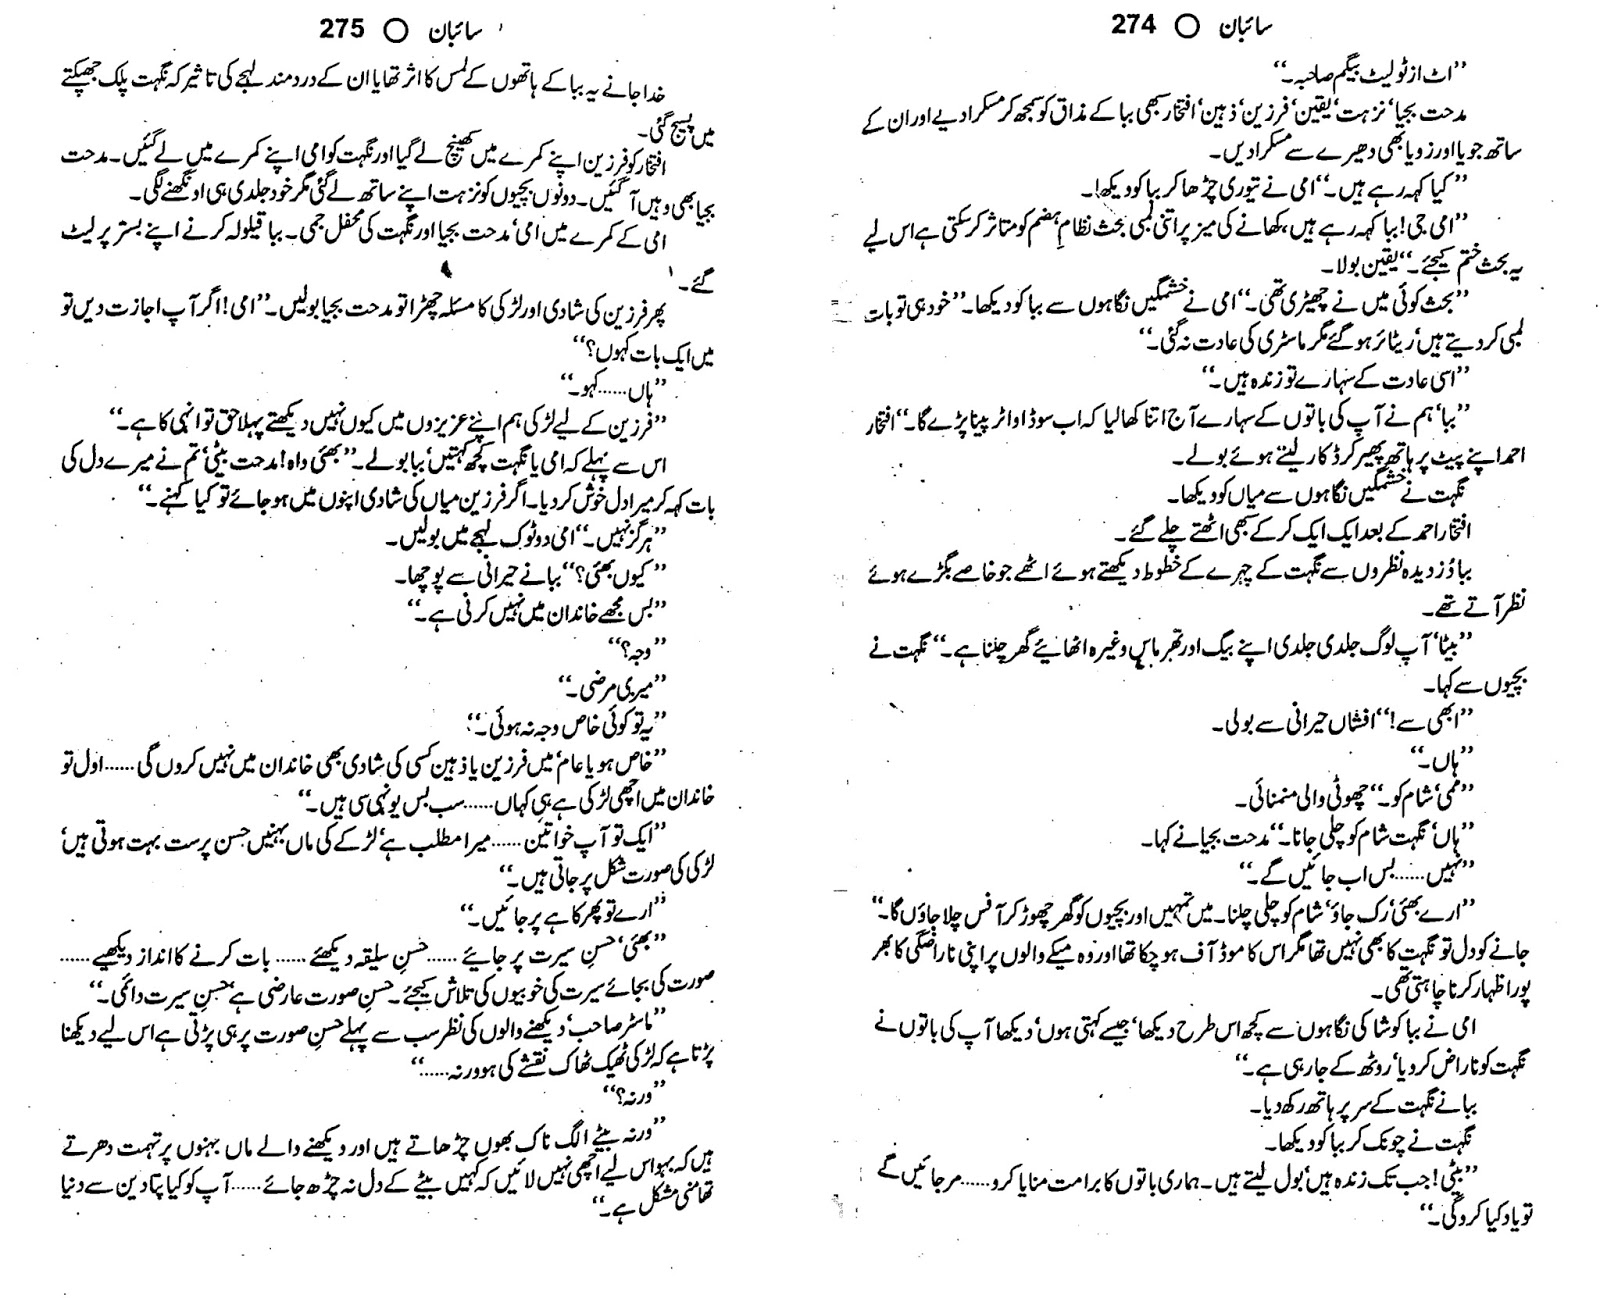 سائبان ○ 274
”اٹ از ٹولیٹ بیگم صاحبہ۔“
مدحت بجیا‘ نزہت‘ یقین‘ فرزین‘ ذہین‘ افتخار سبھی ببا کے مذاق کو سمجھ کر مسکرا دیے اور ان کے
ساتھ جویا اور زویا بھی دھیرے سے مسکرا دیں۔
”کیا کہہ رہے ہیں۔“ امی نے تیوری چڑھا کر ببا کو دیکھا۔
”امی جی! ببا کہہ رہے ہیں‘ کھانے کی میز پر اتنی لمبی بحث نظامِ ہضم کو متاثر کر سکتی ہے اس لیے
یہ بحث ختم کیجئے۔“ یقین بولا۔
”بحث کوئی میں نے چھیڑی تھی۔“ امی نے خشمگیں نگاہوں سے ببا کو دیکھا۔ ”خود ہی تو بات
لمبی کر دیتے ہیں‘ ریٹائر ہو گئے مگر ماسٹری کی عادت نہ گئی۔“
”اسی عادت کے سہارے تو زندہ ہیں۔“
”ببا‘ ہم نے آپ کی باتوں کے سہارے آج اتنا کھا لیا کہ اب سوڈا واٹر پینا پڑے گا۔“ افتخار
احمد اپنے پیٹ پر ہاتھ پھیر کر ڈکار لیتے ہوئے بولے۔
نگہت نے خشمگیں نگاہوں سے میاں کو دیکھا۔
افتخار احمد کے بعد ایک ایک کر کے سبھی اٹھتے چلے گئے۔
ببا دُزدیدہ نظروں سے نگہت کے چہرے کے خطوط دیکھتے ہوئے اٹھے جو خاصے بگڑے ہوئے
نظر آتے تھے۔
”بیٹا‘ آپ لوگ جلدی جلدی اپنے بیگ اور تھرماس وغیرہ اٹھائیے گھر چلنا ہے۔“ نگہت نے
بچیوں سے کہا۔
”ابھی سے!“ افشاں حیرانی سے بولی۔
”ہاں۔“
”ممی‘ شام کو۔“ چھوٹی والی منمنائی۔
”ہاں‘ نگہت شام کو چلی جانا۔“ مدحت بجیا نے کہا۔
”نہیں...... بس اب جائیں گے۔“
”ارے بھئی‘ رک جاؤ‘ شام کو چلی چلنا۔ میں تمہیں اور بچیوں کو گھر چھوڑ کر آفس چلا جاؤں گا۔“
جانے کو دل تو نگہت کا بھی نہیں تھا مگر اس کا موڈ آف ہو چکا تھا اور وہ میکے والوں پر اپنی ناراضگی کا بھر
پور اظہار کرنا چاہتی تھی۔
امی نے ببا کو شاکی نگاہوں سے کچھ اس طرح دیکھا‘ جیسے کہتی ہوں‘ دیکھا آپ کی باتوں نے
نگہت کو ناراض کر دیا‘ روٹھ کے جا رہی ہے۔“
ببا نے نگہت کے سر پر ہاتھ رکھ دیا۔
نگہت نے چونک کر ببا کو دیکھا۔
”بیٹی! جب تک زندہ ہیں‘ بول لیتے ہیں۔ ہماری باتوں کا برا مت منایا کرو...... مر جائیں گے
تو یاد کیا کرو گی۔“
سائبان ○ 275
خدا جانے یہ ببا کے ہاتھوں کے لمس کا اثر تھا یا ان کے دردمند لہجے کی تاثیر کہ نگہت پلک جھپکتے
میں پسیج گئی۔
افتخار کو فرزین اپنے کمرے میں کھینچ لے گیا اور نگہت کو امی اپنے کمرے میں لے گئیں۔ مدحت
بجیا بھی وہیں آ گئیں۔ دونوں بچیوں کو نزہت اپنے ساتھ لے گئی مگر خود جلدی ہی اونگھنے لگی۔
امی کے کمرے میں امی‘ مدحت بجیا اور نگہت کی محفل جمی۔ ببا قیلولہ کرنے اپنے بستر پر لیٹ
گئے۔
پھر فرزین کی شادی اور لڑکی کا مسئلہ چھڑا تو مدحت بجیا بولیں۔ ”امی! اگر آپ اجازت دیں تو
میں ایک بات کہوں؟“
”ہاں...... کہو۔“
”فرزین کے لیے لڑکی ہم اپنے عزیزوں میں کیوں نہیں دیکھتے پہلا حق تو انہی کا ہے۔“
اس سے پہلے کہ امی یا نگہت کچھ کہتیں‘ ببا بولے۔ ”بھئی واہ! مدحت بیٹی‘ تم نے میرے دل کی
بات کہہ کر میرا دل خوش کر دیا۔ اگر فرزین میاں کی شادی اپنوں میں ہو جائے تو کیا کہنے۔“
”ہرگز نہیں۔“ امی دو ٹوک لہجے میں بولیں۔
”کیوں بھئی؟“ ببا نے حیرانی سے پوچھا۔
”بس مجھے خاندان میں نہیں کرنی ہے۔“
”وجہ؟“
”میری مرضی۔“
”یہ تو کوئی خاص وجہ نہ ہوئی۔“
”خاص ہو یا عام‘ میں فرزین یا ذہین کسی کی شادی بھی خاندان میں نہیں کروں گی...... اول تو
خاندان میں اچھی لڑکی ہے ہی کہاں...... سب بس یونہی سی ہیں۔“
”ایک تو آپ خواتین...... میرا مطلب ہے‘ لڑکے کی ماں بہنیں حسن پرست بہت ہوتی ہیں‘
لڑکی کی صورت شکل پر جاتی ہیں۔“
”ارے تو پھر کاہے پر جائیں۔“
”بھئی‘ حسنِ سیرت پر جائیے...... حسنِ سلیقہ دیکھئے...... بات کرنے کا انداز دیکھیے......
صورت کی بجائے سیرت کی خوبیوں کی تلاش کیجئے۔ حسنِ صورت عارضی ہے‘ حسنِ سیرت دائمی۔“
”ماسٹر صاحب‘ دیکھنے والوں کی نظر سب سے پہلے حسنِ صورت پر ہی پڑتی ہے اس لیے دیکھنا
پڑتا ہے کہ لڑکی ٹھیک ٹھاک نقشے کی ہو ورنہ......“
”ورنہ؟“
”ورنہ بیٹے الگ ناک بھوں چڑھاتے ہیں اور دیکھنے والے ماں بہنوں پر تہمت دھرتے
ہیں کہ بہو اس لیے اچھی نہیں لائیں کہ کہیں بیٹے کے دل نہ چڑھ جائے...... آپ کو کیا پتا دین سے دنیا
تھامنی مشکل ہے۔“